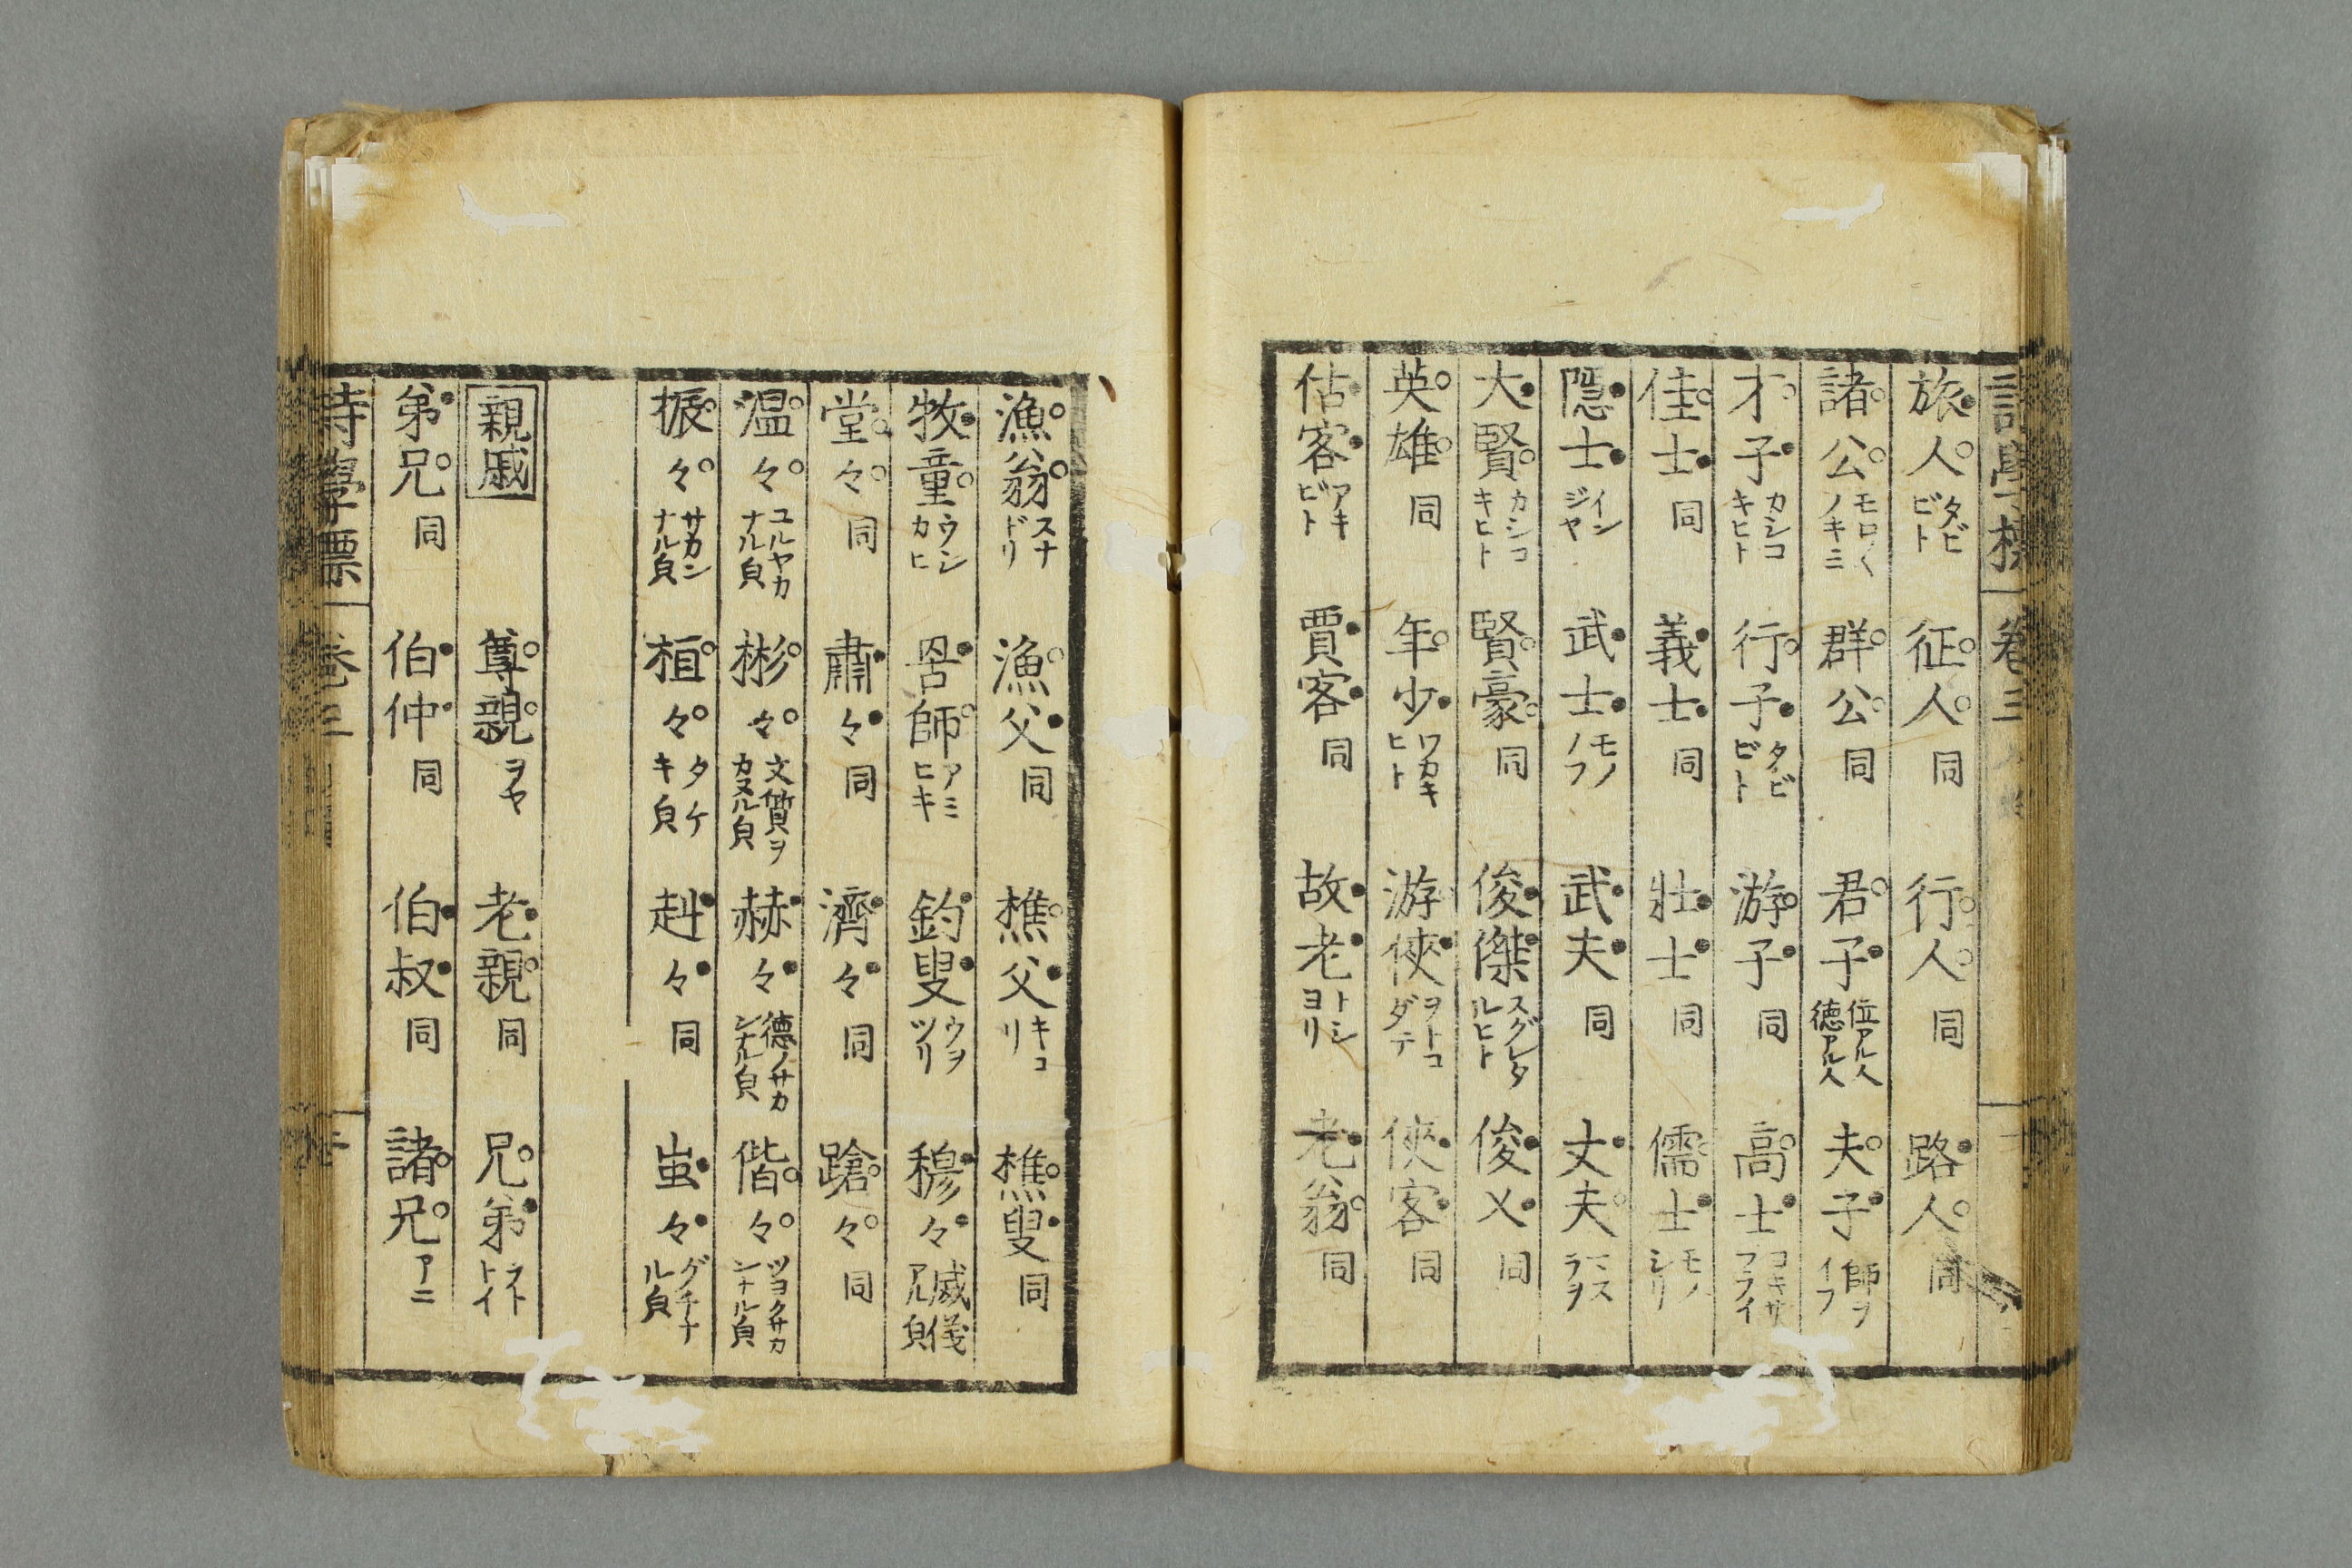 旅人 タビビト 征人 同 行人 同 路人 同
諸公 モロ〱ノキミ 群公 同 君子 位アル人徳アル人 夫子 師ヲイフ
才子 カシコキヒト 行子 タビビト 游子 同 高士
佳士 同 義士 同 壮士 同 儒士 モノシリ
隠士 インジヤ 武士 モノノフ 武夫 同 丈夫 マスラヲ
大賢 カシコキヒト 賢豪 同 俊傑 スグレタルヒト 俊乂 同
英雄 同 年少 ワカキヒト 游侠 ヲトコダテ 侠客 同
估客 アキビト 賈客 同 故老 トシヨリ 老翁 同
漁翁 スナドリ 漁父 同 樵父 キコリ 樵叟 同
牧童 ウシカヒ 罟師 アミヒキ 釣叟 ウヲツリ 穆々 威儀アル㒵
堂々 同 肅々 同 濟々 同 蹌々 同
温々 ユルヤカナル㒵 彬々 文質ヲカヌル㒵 赫々 德ノサカンナル㒵 偕々 ツヨクサカンナル㒵
振々 サカンナル㒵 桓々 タケキ㒵 赳々 同 蚩々 グチナル㒵
親戚 尊親 ヲヤ 老親 同 兄弟 ヲトトイ
弟兄 同 伯仲 同 伯叔 同 諸兄 アニ
卷三